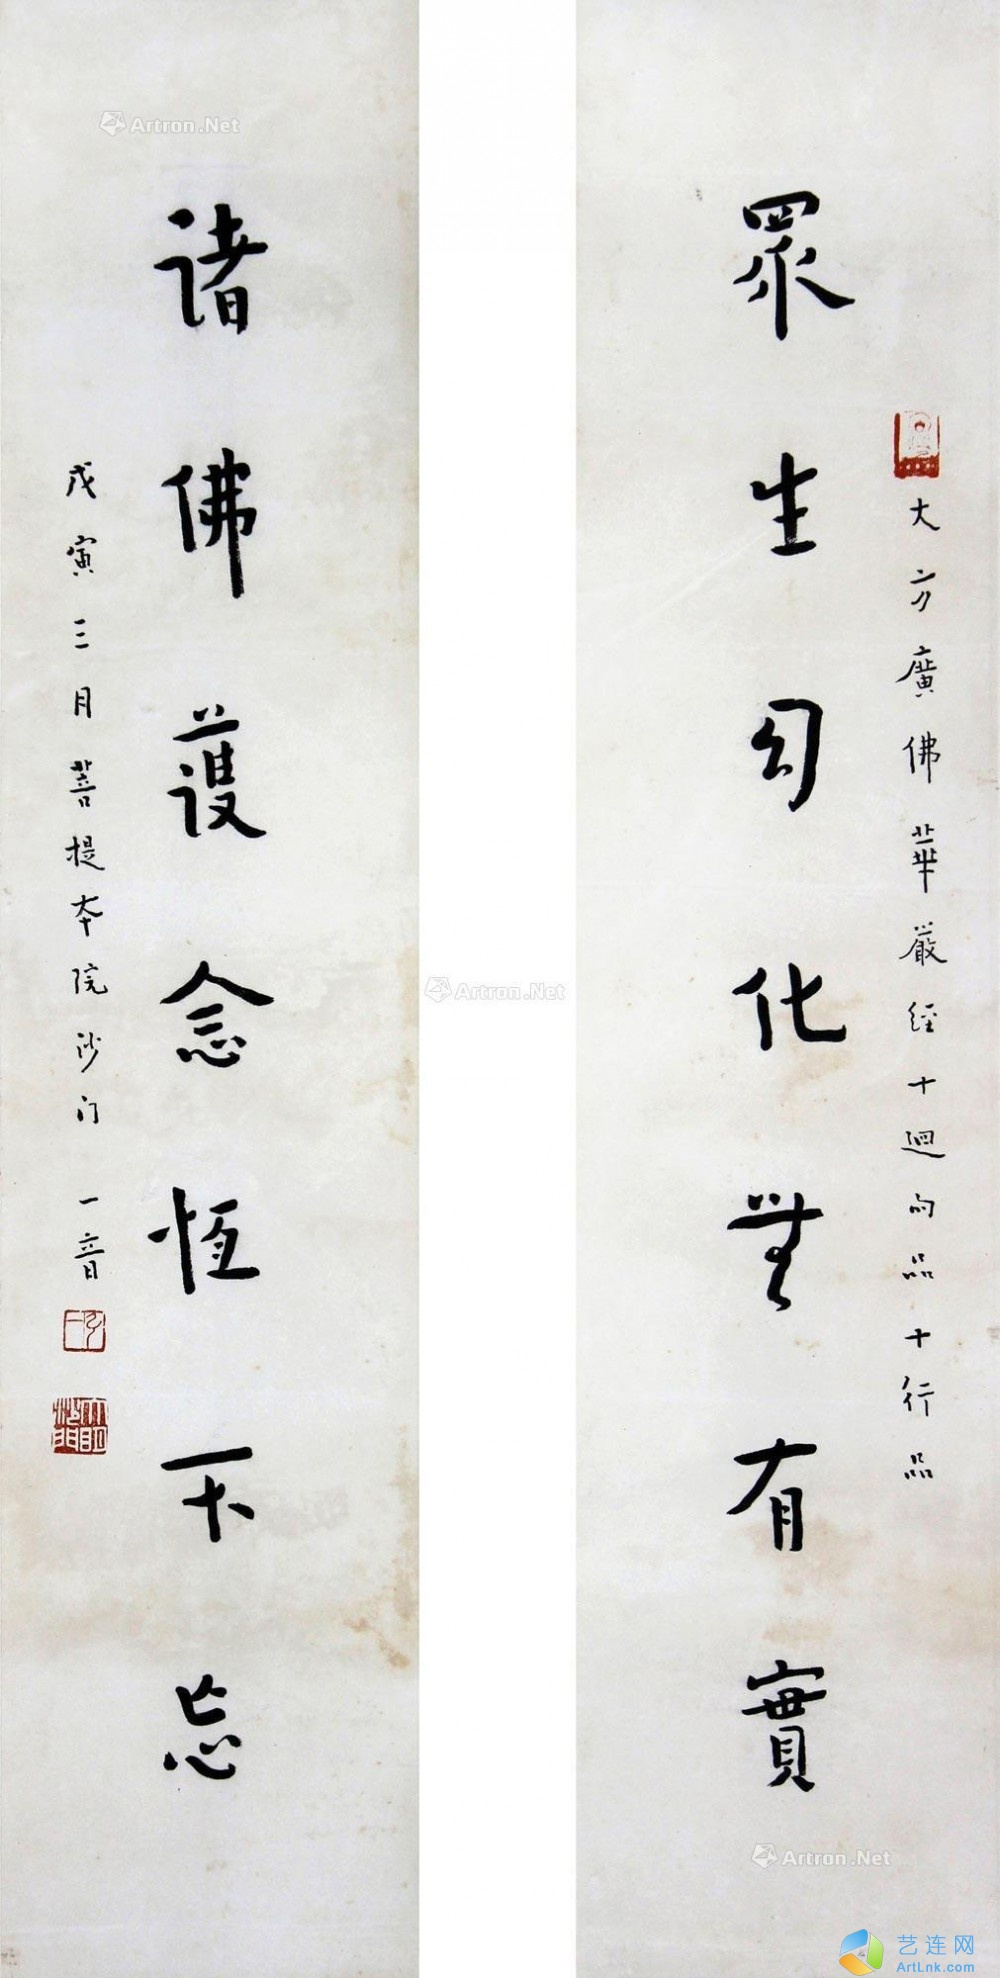 大方廣佛華嚴經十迴向品十行品
眾生幻化無有實
諸佛護念恆不忘
戊寅三月菩提本院沙门一音
Artron.Net
Artron.Net
Artron.Net
艺连网
ArtLnk.com